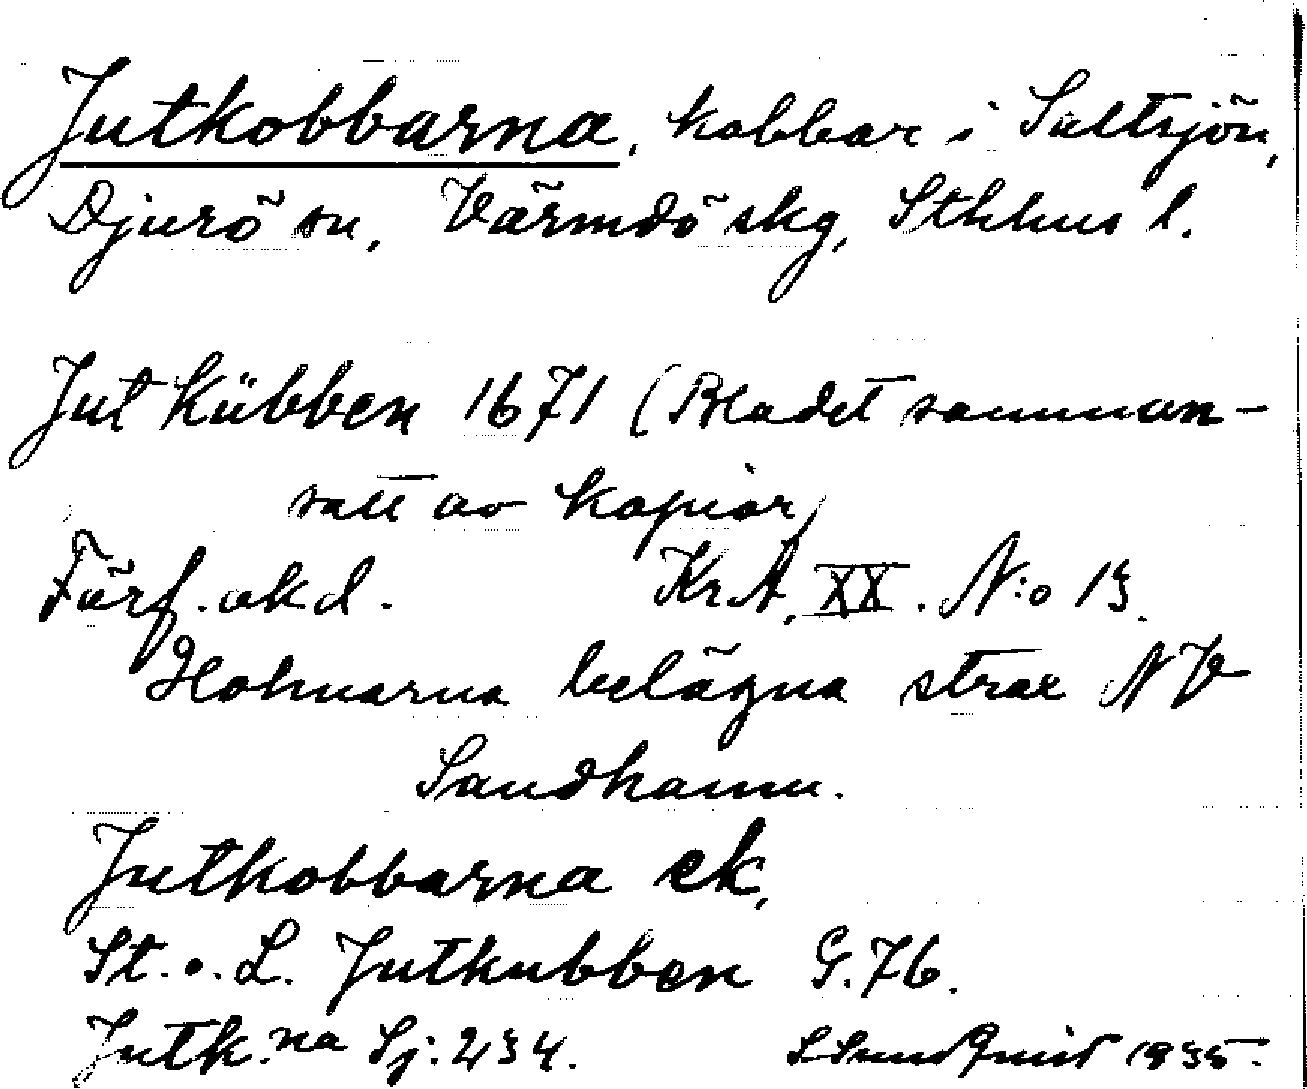 Jutkobbarna, kobbar i Saltsjön,
Djurö sn, Värmdö skg, Sthlms l.
Jut Kübben 1671 (Bladet samman-
satt av kopior)
Förf. okd. KrA. XX. N:o 13.
Holmarna belägna strax NV
Sandhamn.
Jutkobbarna ek,
St. o. L. Jutkubben G. 76.
Jutk:na Sj. 234. S Sundquist 1935.